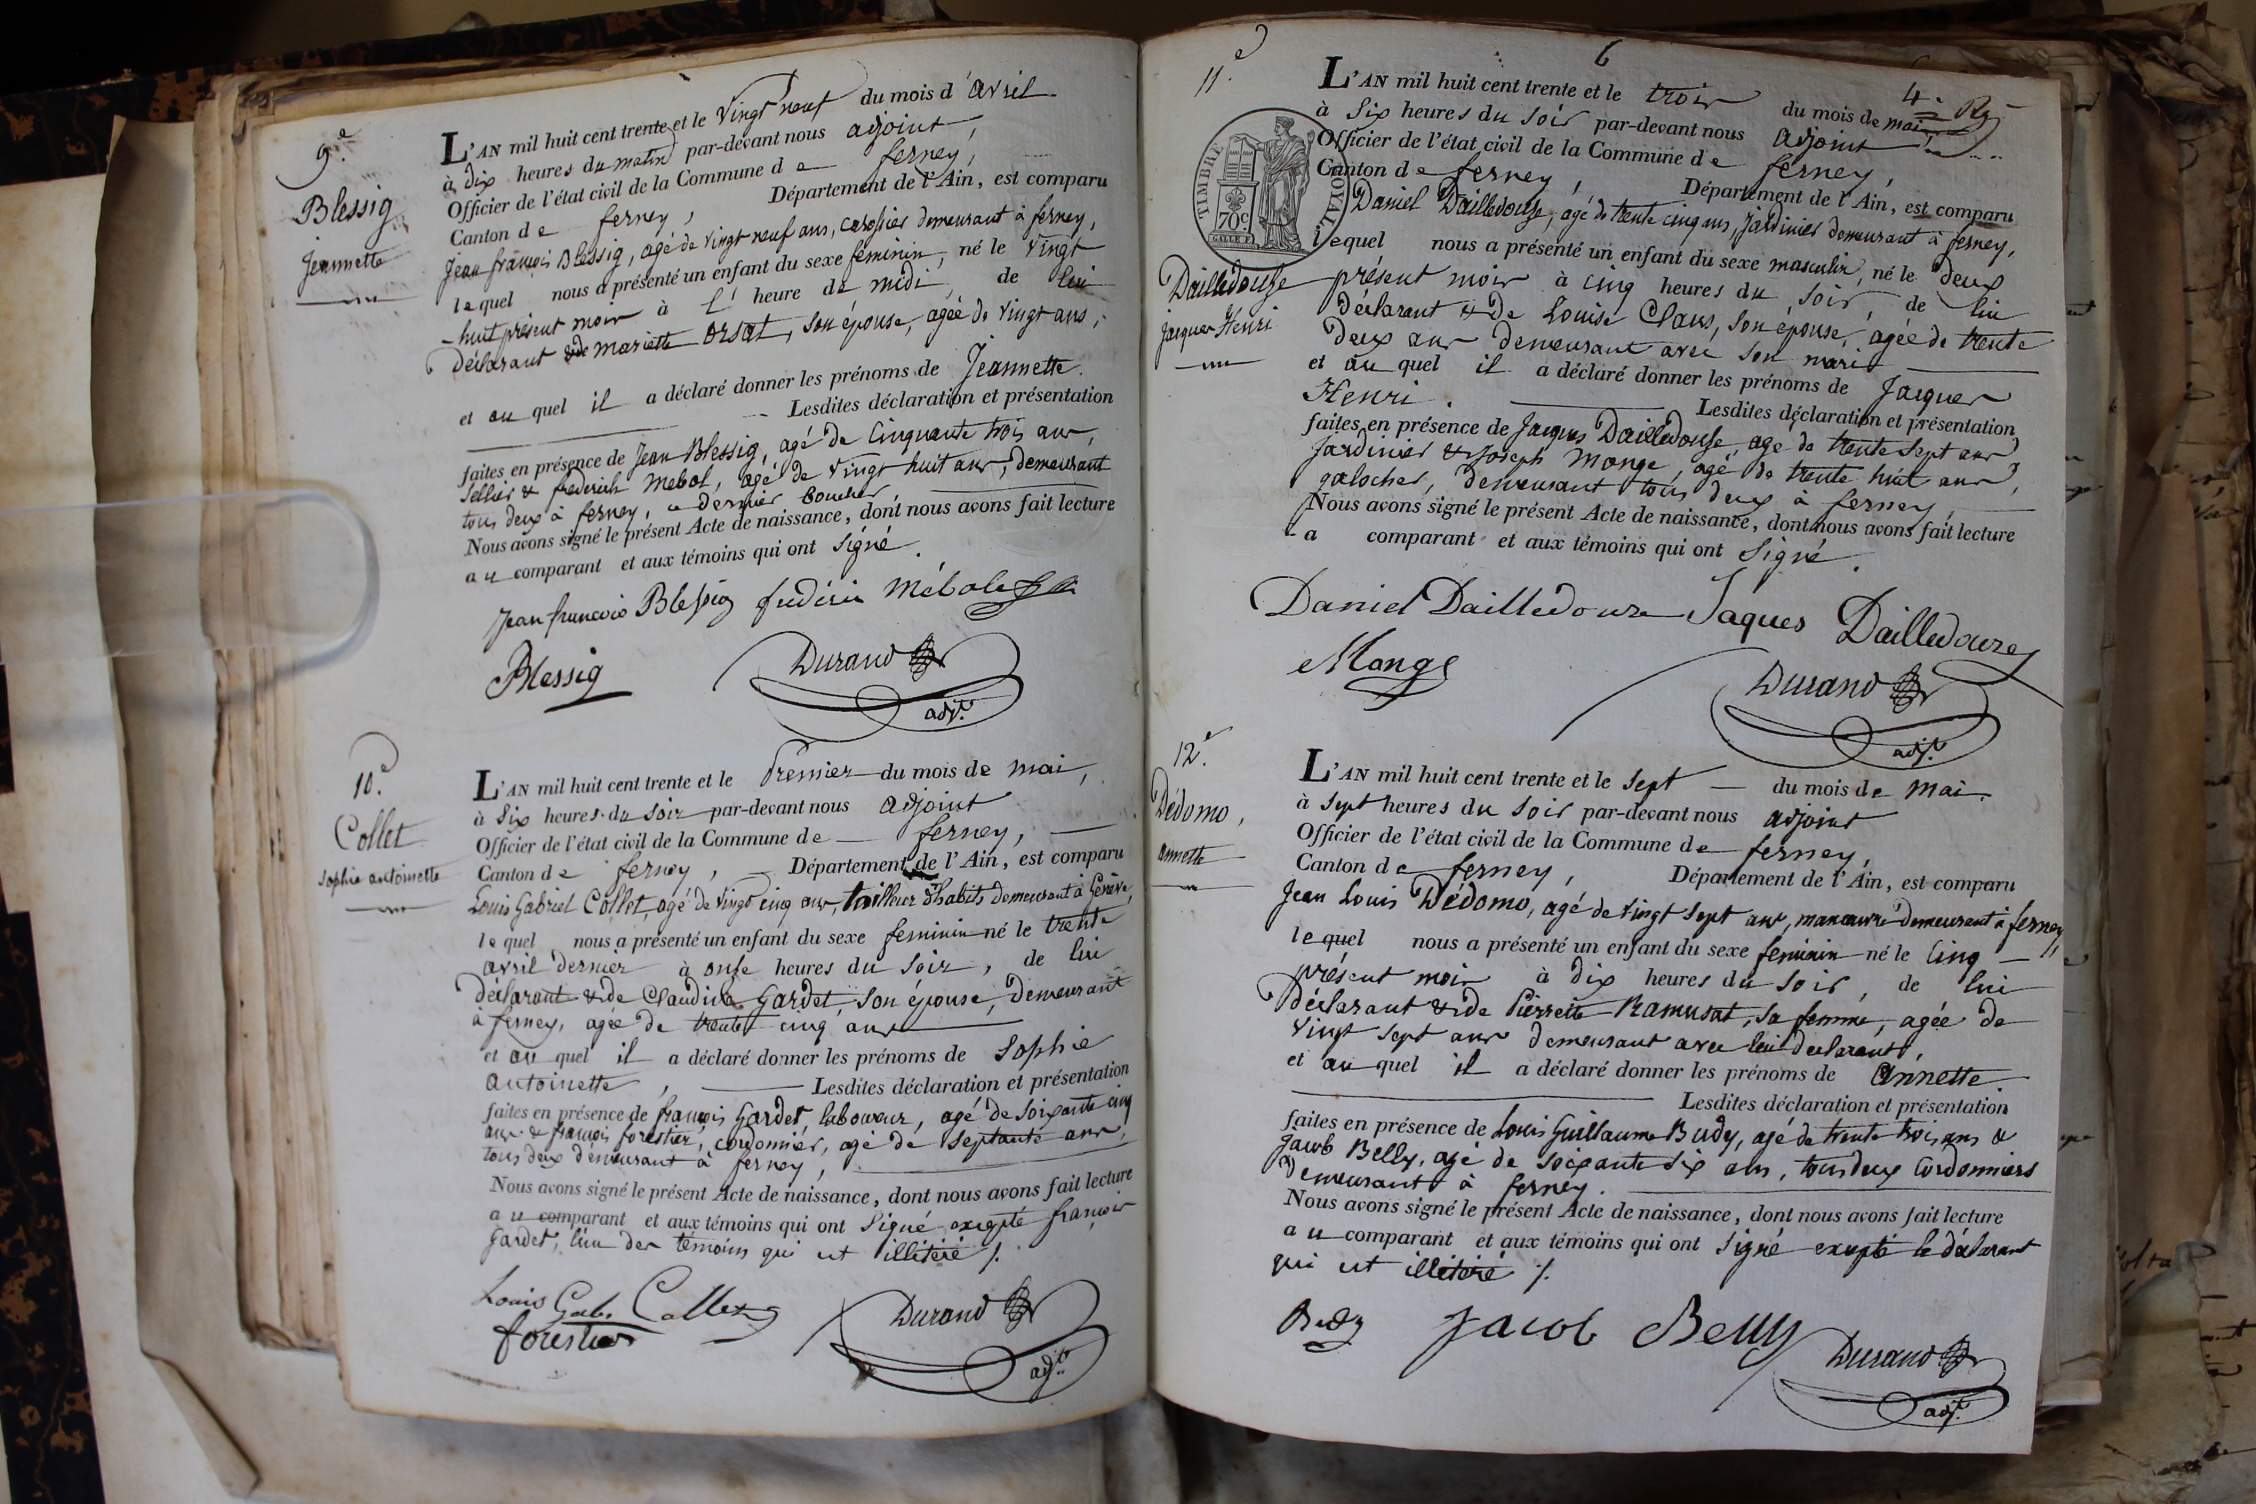 9.e
Blessig
Jeannette
L'AN mil huit cent trente et le Vingt neuf du mois d'avril
à dix heures du matin par-devant nous adjoint,
Officier de l'état civil de la Commune de ferney,
Canton de ferney, Département de l'Ain, est comparu
Jean françois Blessig, agé de vingt neuf ans, carossier demeurant à ferney,
lequel nous a présenté un enfant du sexe féminin, né le vingt
-huit présent mois à l' heure de midi, de lui
déclarant & de mariette Orsat, son épouse, agée de vingt ans,
et au quel il a déclaré donner les prénoms de Jeannette.
Lesdites déclaration et présentation
faites en présence de Jean Blessig, agé de Cinquante trois ans,
Sellier & frederich Mebol, agé de vingt huit ans, demeurant
tous deux à ferney, ce dernier boucher
Nous avons signé le présent Acte de naissance, dont nous avons fait lecture
au comparant et aux témoins qui ont signé.
Jean francois Blessig Mébole
Blessig Durand
adj.t
10.e
Collet
Sophie antoinette
L'AN mil huit cent trente et le Premier du mois de mai,
à Six heures du soir par-devant nous adjoint
Officier de l'état civil de la Commune de ferney,
Canton de ferney, Département de l'Ain, est comparu
Louis Gabriel Collet, agé de vingt cinq ans, tailleur d'habits demeurant à Genève,
lequel nous a présenté un enfant du sexe feminin né le trente
avril dernier à onse heures du soir, de lui
déclarant & de Claudine Gardet, son épouse, demeurant
à ferney, agée de trente cinq ans
et au quel il a déclaré donner les prénoms de Sophie
antoinette, Lesdites déclaration et présentation
faites en présence de françois Gardet, laboureur, agé de soixante cinq
ans & françois forestier, cordonnier, agé de septante ans,
tous deux demeurant à ferney,
Nous avons signé le présent Acte de naissance, dont nous avons fait lecture
au comparant et aux témoins qui ont Signé exepté françois
Gardet, l'un des témoins qui est illitéré /.
Louis Gab. Collet Durand
forestier adj.t
6
4.e
11.e
TIMBRE ROYAL
70 c.
Dailledouse
jacques Henri
L'AN mil huit cent trente et le trois du mois de mai
à Six heures du soir par-devant nous adjoint
Officier de l'état civil de la Commune de ferney,
Canton de ferney, Département de l'Ain, est comparu
Daniel Dailledouse, agé de trente cinq ans, Jardinier demeurant à ferney,
lequel nous a présenté un enfant du sexe masculin, né le deux
présent mois à cinq heures du soir, de lui
déclarant & de Louise Claus, son épouse, agée de trente
deux ans demeurant avec son mari
et au quel il a déclaré donner les prénoms de Jacques
Henri. Lesdites déclaration et présentation
faites en présence de Jacques Dailledouse, age de trente sept ans
Jardinier & Joseph Monge, agé de trente huit ans,
galocher, demeurant tous deux à ferney,
Nous avons signé le présent Acte de naissance, dont nous avons fait lecture
a comparant et aux témoins qui ont Signé.
Daniel Dailledouze Jaques Dailledouze
Monge Durand
adj.t
12.e
Dédomo,
annette
L'AN mil huit cent trente et le sept du mois de mai
à sept heures du soir par-devant nous adjoint
Officier de l'état civil de la Commune de ferney,
Canton de ferney, Département de l'Ain, est comparu
Jean Louis Dédomo, agé de vingt sept ans, manœuvre demeurant à ferney,
lequel nous a présenté un enfant du sexe feminin né le Cinq
présent mois à dix heures du soir, de lui
déclarant & de Pierrette Ramusat, sa femme, agée de
vingt sept ans demeurant avec lui déclarant,
et au quel il a déclaré donner les prénoms de Annette.
Lesdites déclaration et présentation
faites en présence de Louis Guillaume Budy, agé de trente trois ans &
Jacob Belly, agé de soixante six ans, tous deux Cordonniers
demeurant à ferney.
Nous avons signé le présent Acte de naissance, dont nous avons fait lecture
au comparant et aux témoins qui ont Signé exepté le déclarant
qui est illitéré /.
Budy Jacob Belly Durand
adj.t